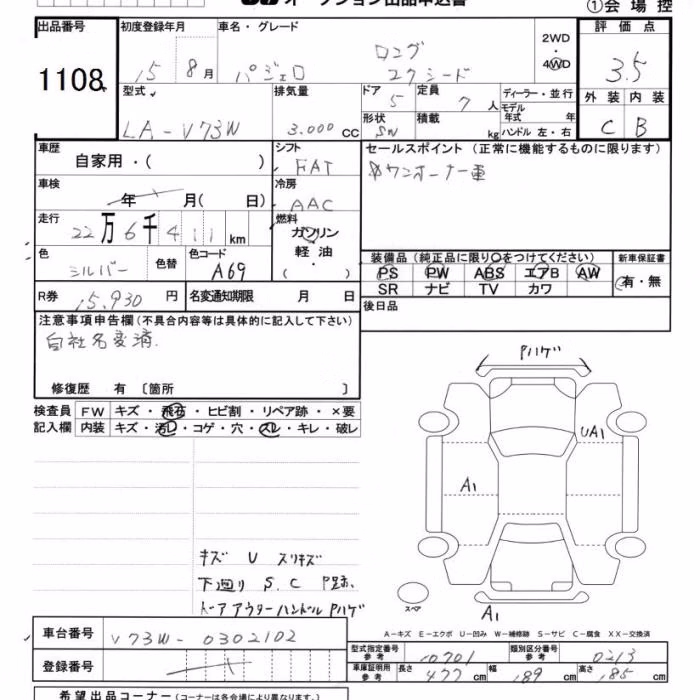 オークション出品申込書
①会場控
出品番号 初度登録年月 車名・グレード 2WD・4WD 評価点
1108 15 8月 パジェロ ロング エクシード 3.5
型式 排気量 ドア 定員 ディーラー・並行 外装 内装
LA-V73W 3.000CC 5 7人 モデル年式 年 C B
形状 積載 ハンドル 左・右
SW kg
車歴 自家用・( ) シフト FAT セールスポイント (正常に機能するものに限ります)
車検 年 月( 日) 冷房 AAC ワンオーナー車
走行 22万6千411km 燃料 ガソリン
軽油・( )
色 シルバー 色替 色コード A69 装備品 (純正品に限り○をつけてください) 新車保証書
PS PW ABS エアB AW 有・無
SR ナビ TV カワ
R券 15,930円 名変通知期限 月 日 後日品
注意事項申告欄 (不具合内容等は具体的に記入して下さい)
自社名変済.
修復歴 有 〔箇所 〕
検査員 FW キズ・飛石・ヒビ割・リペア跡・×要
記入欄 内装 キズ・汚レ・コゲ・穴・スレ・キレ・破レ
Pハゲ
UA1
A1
キズ U スリキズ
下廻り S.C
ドアアウターハンドルPハゲ
スペア
A1
A-キズ E-エクボ U-凹み W-補修跡 S-サビ C-腐食 XX-交換済
車台番号 V73W-0302102
型式指定番号 参考 10701 類別区分番号 参考 0213
登録番号
車庫証明用 参考 長さ 477cm 幅 189cm 高さ 185cm
希望出品コーナー (コーナーは各会場により異なります)